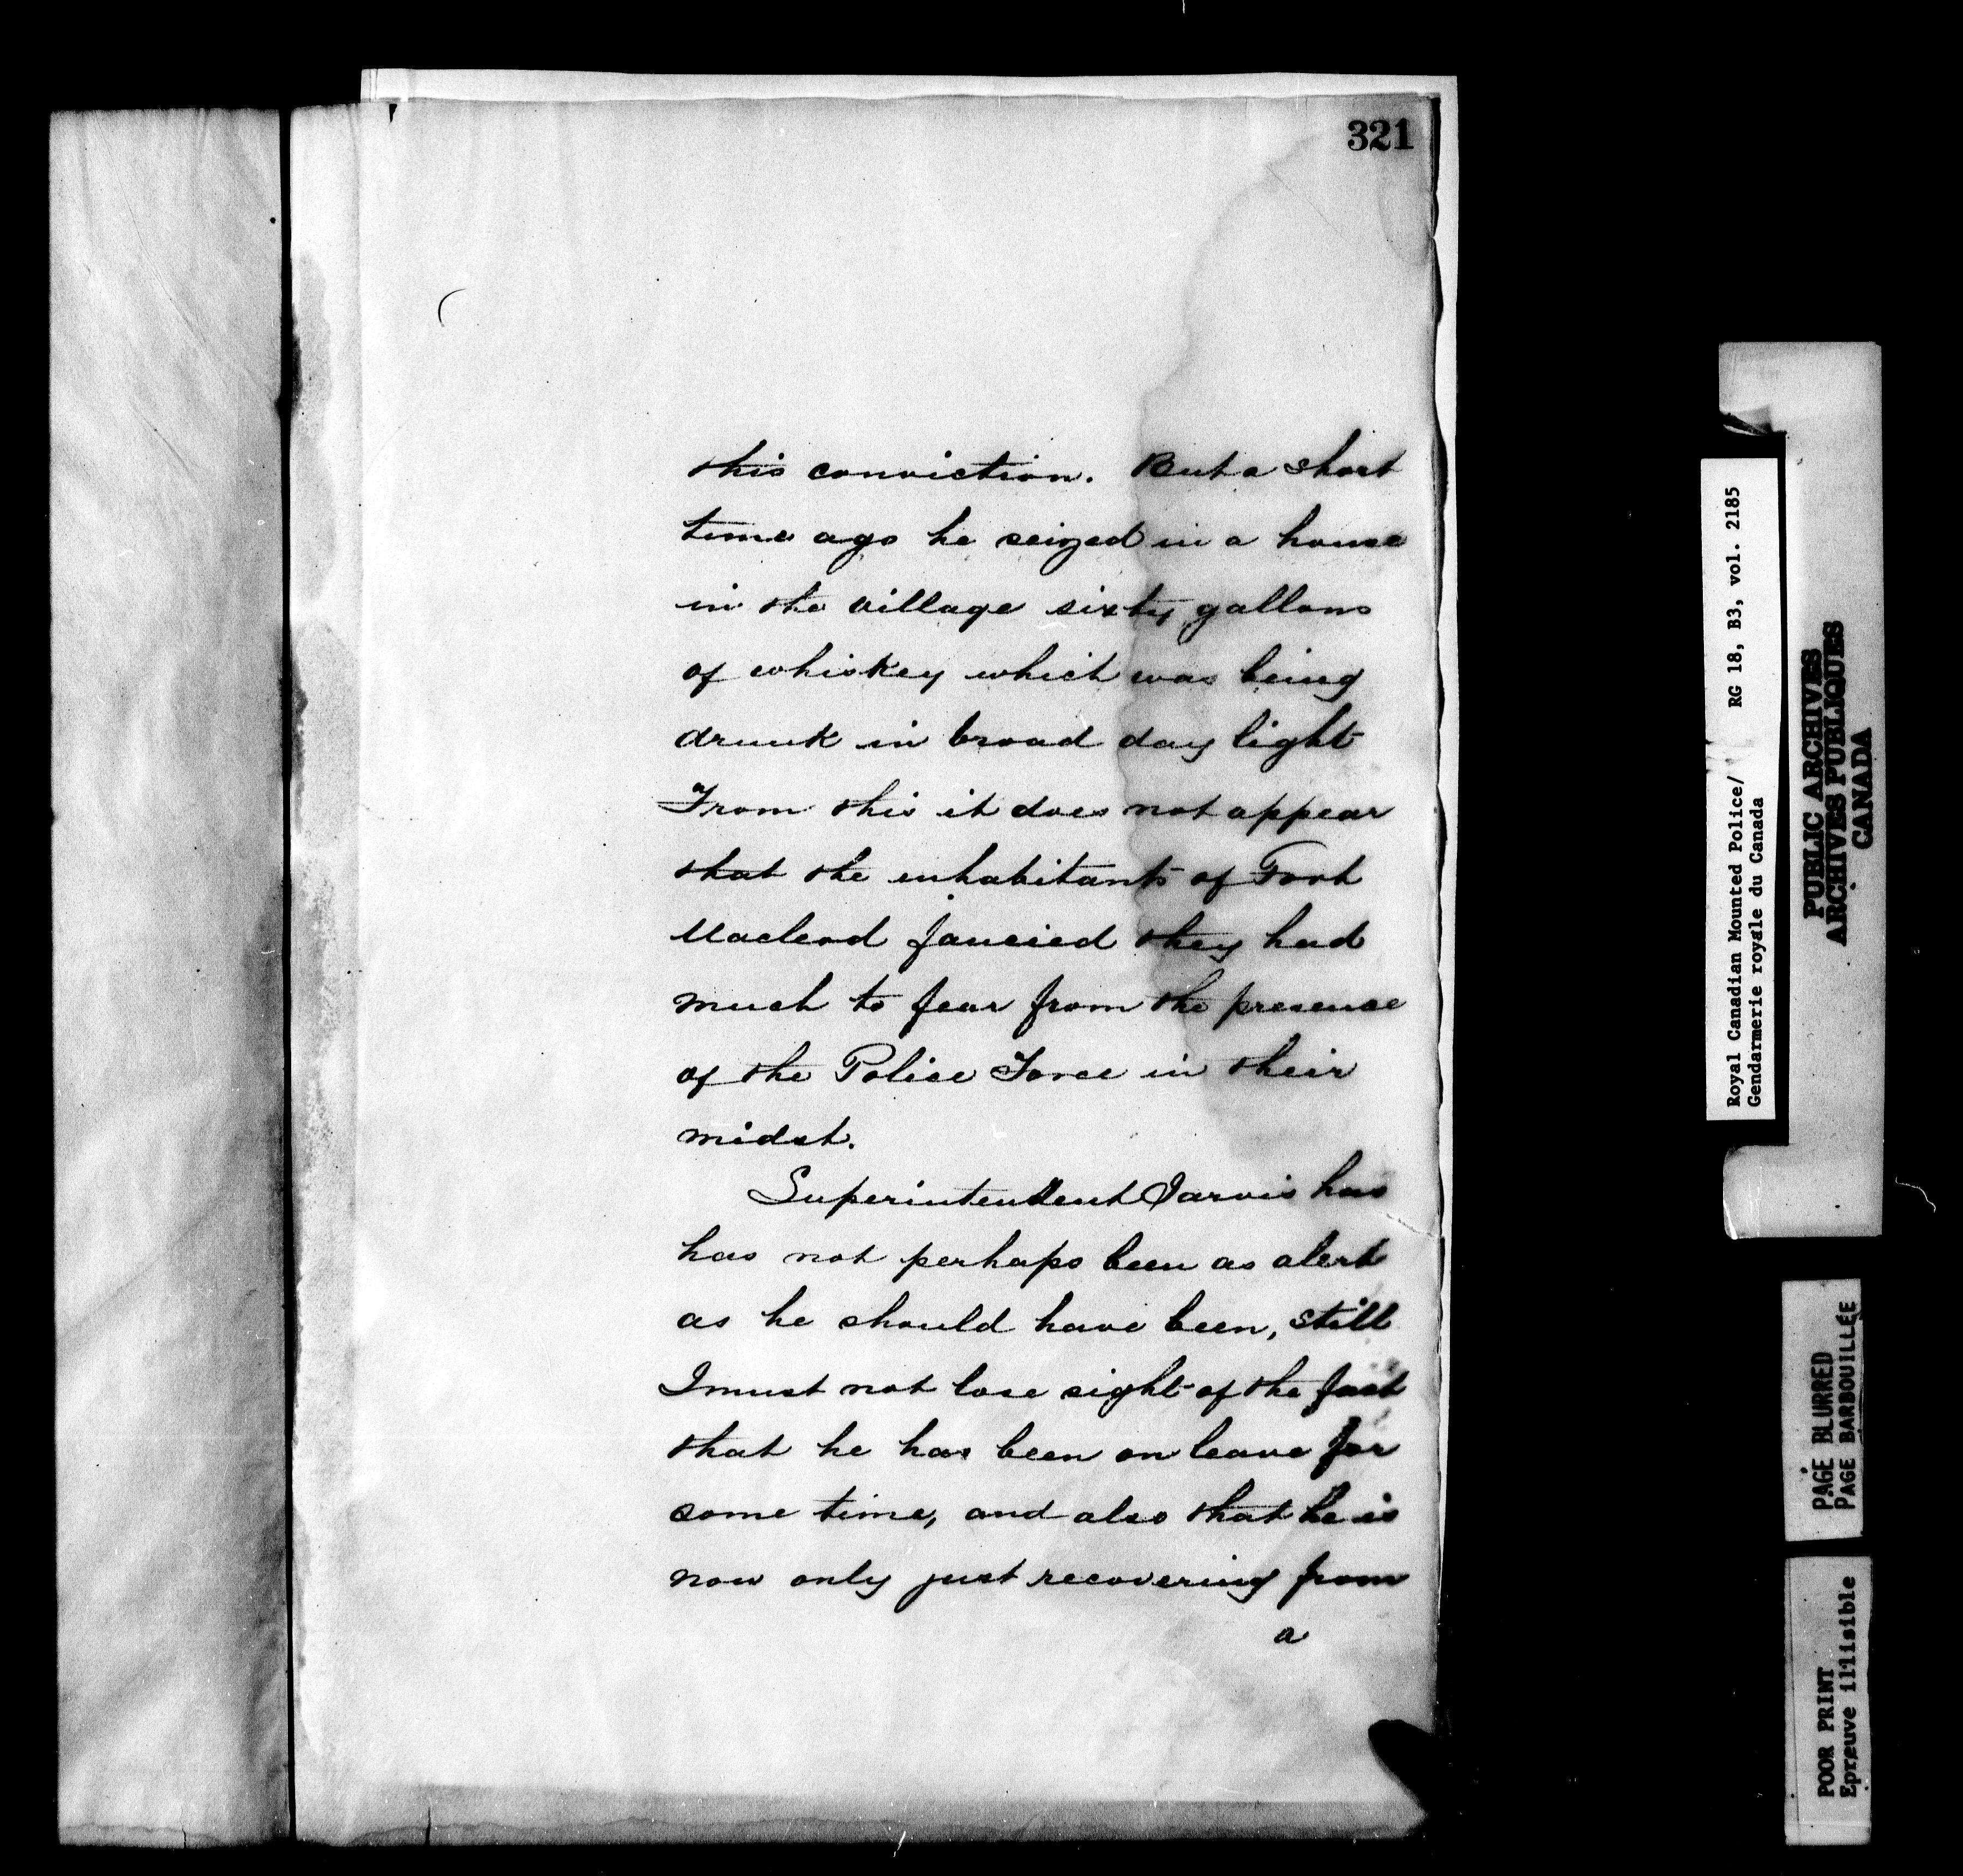 321
this conviction. But a short
time ago he seized in a house
in the village sixty gallons
of whiskey which was being
drunk in broad day light
From this it does not appear
that the inhabitants of Fort
Macleod fancied they had
much to fear from the presence
of the Police Force in their
midst.
Superintendent Jarvis has
has not perhaps been as alert
as he should have been, still
I must not lose sight of the fact
that he has been on leave for
some time, and also that he is
now only just recovering from
a
Royal Canadian Mounted Police/ RG 18, B3, vol. 2185
Gendarmerie royale du Canada
PUBLIC ARCHIVES
ARCHIVES PUBLIQUES
CANADA
PAGE BLURRED
PAGE BARBOUILLÉE
POOR PRINT
Epreuve illisible